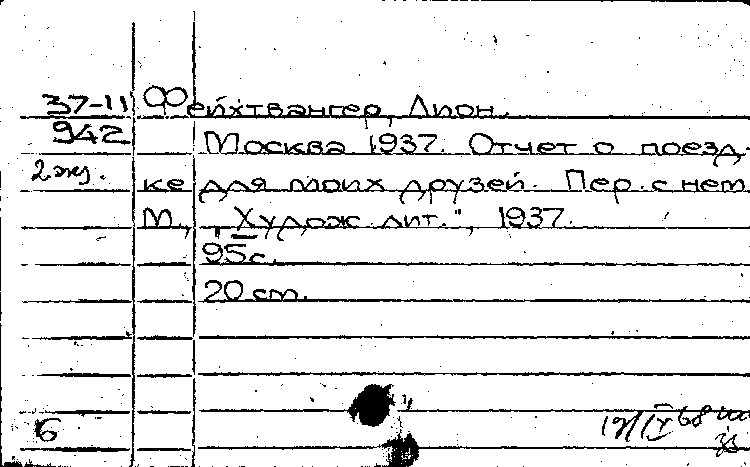 37-11 Фейхтвангер, Лион.
942 Москва 1937. Отчет о поезд-
2 экз. ке для моих друзей. Пер. с нем.
М., "Худож. лит.", 1937.
95 с.
20 см.
6